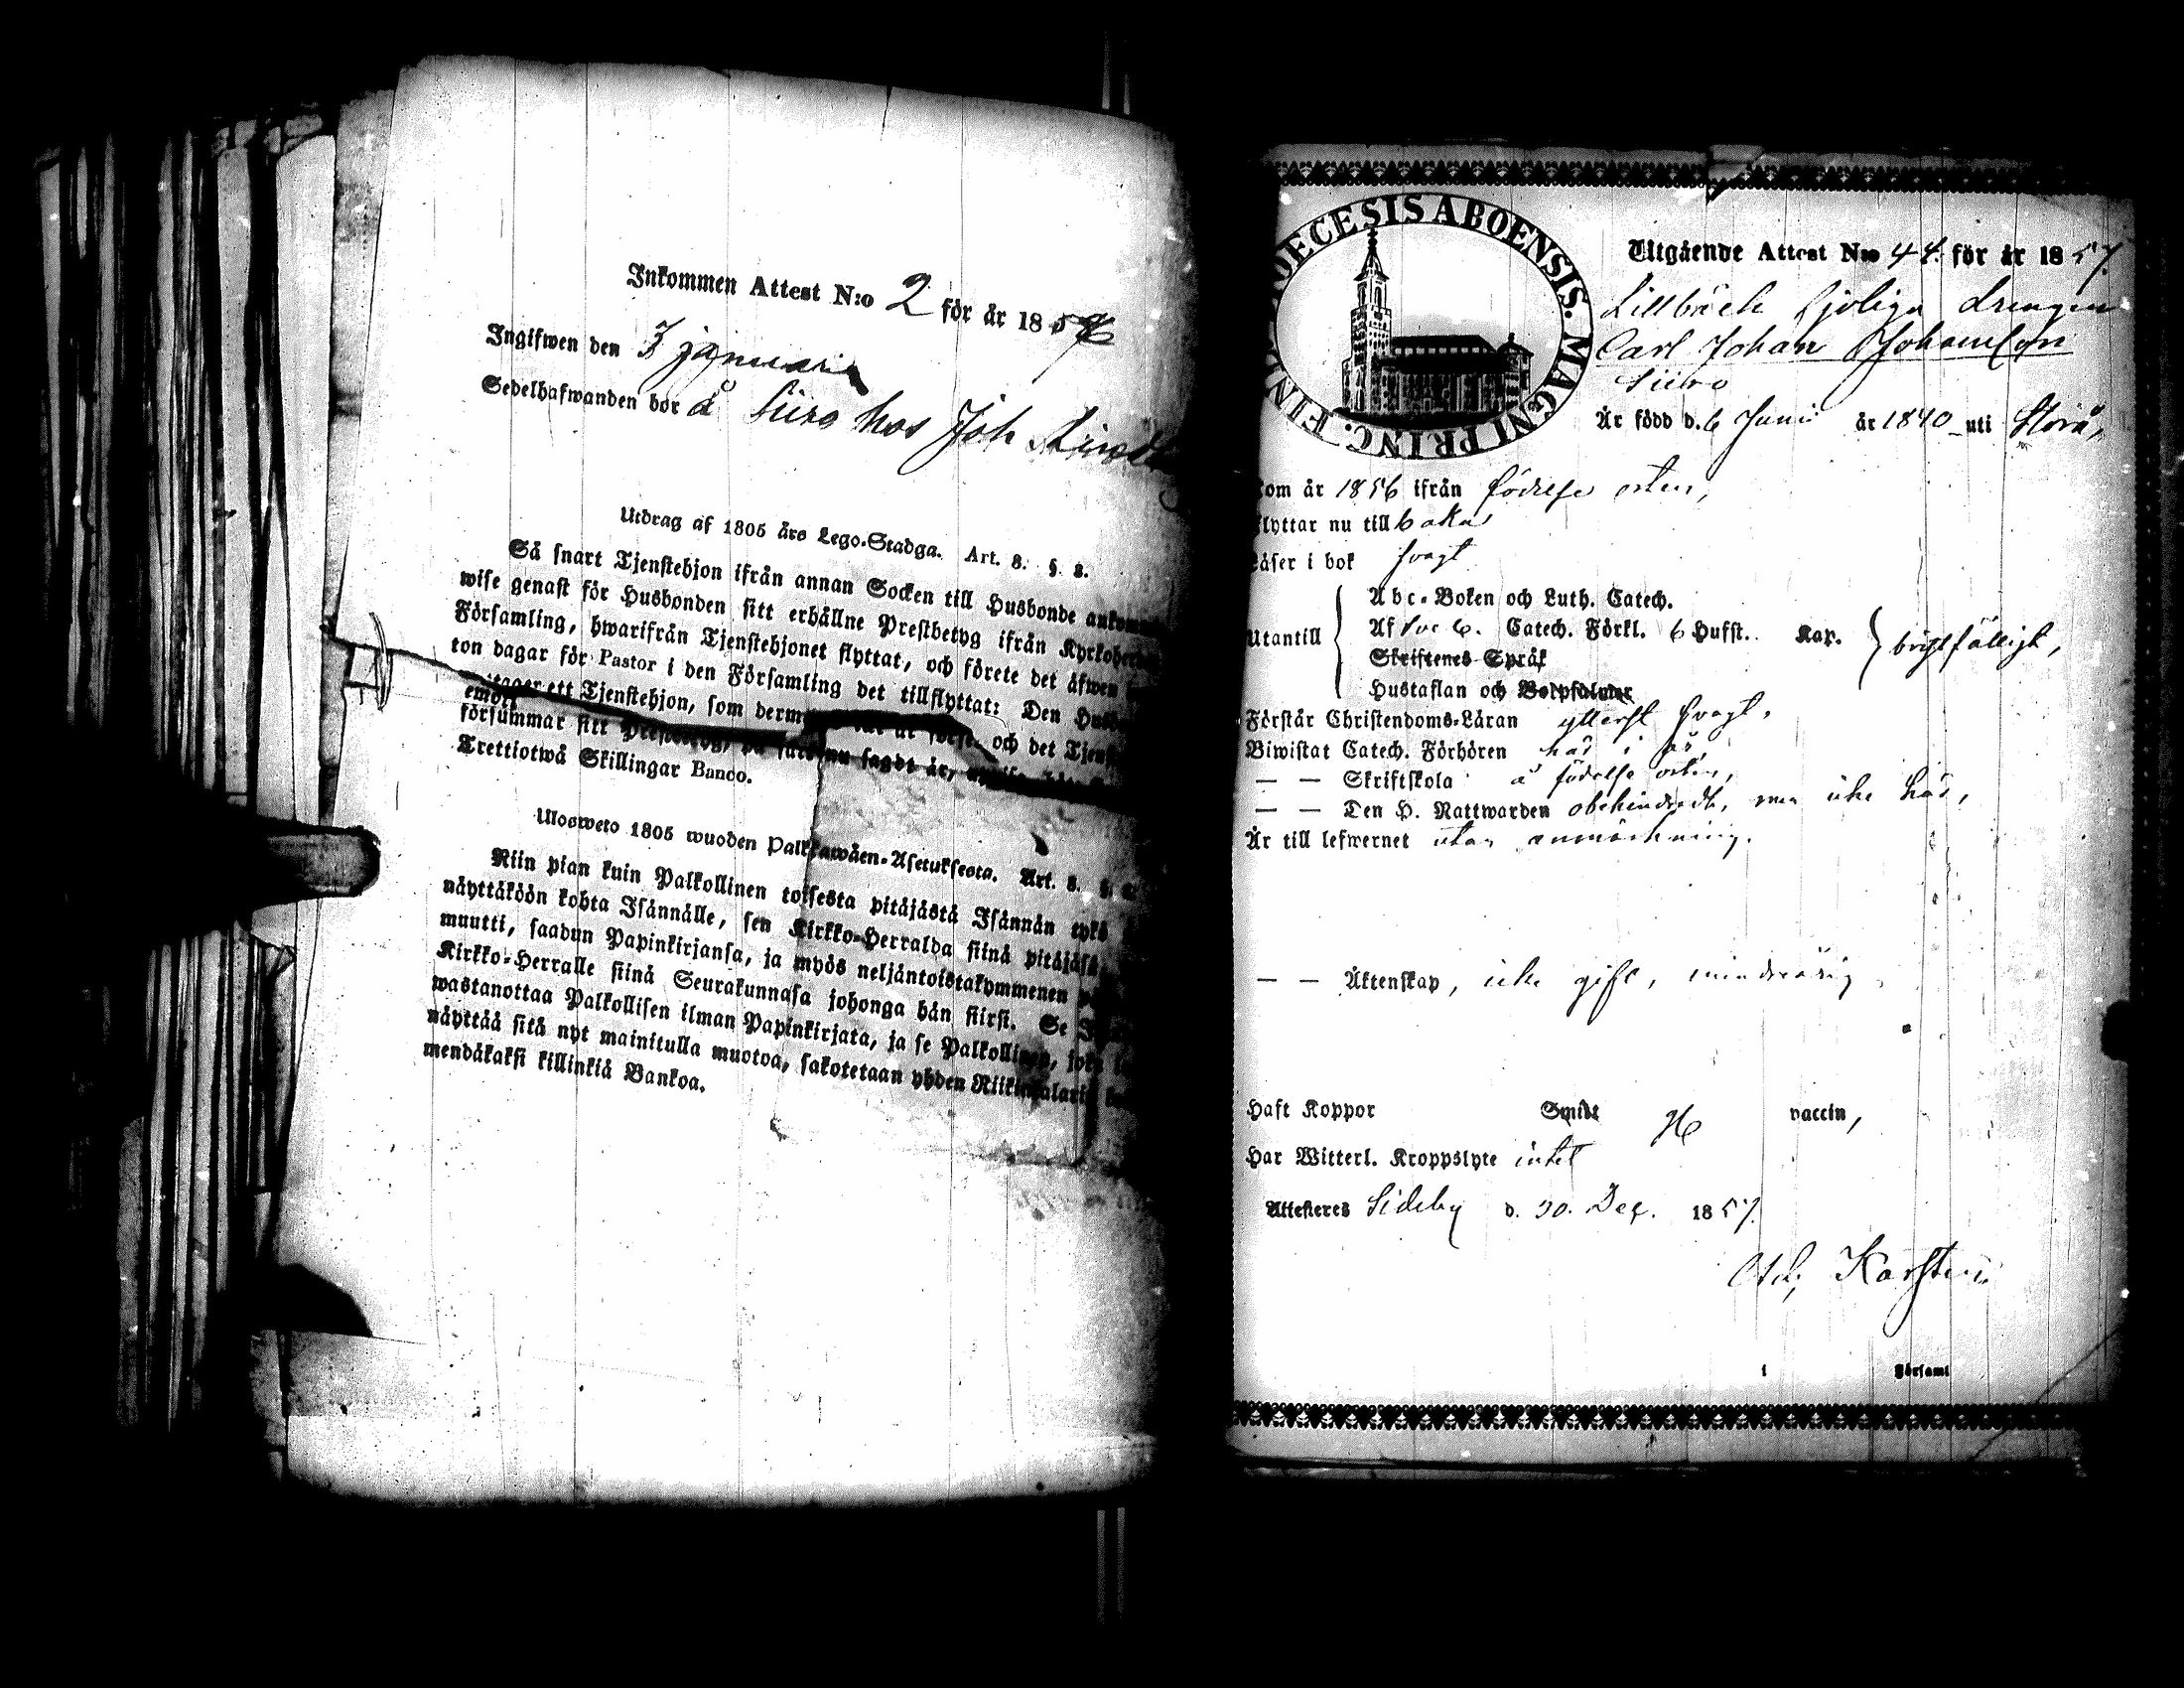 Inkommen Attest N:o 2 för år 18
Ingifwen den 3 januari
Sedelhafwanden bor å Siiro hos Joh
Utdrag af 1805 års Lego-Stadga. Art. 8. §. 8.
Så snart Tjenstehjon ifrån annan Socken till Husbonde
wise genast för Husbonden sitt erhållne Prestbetyg ifrån
Församling, hwarifrån Tjenstehjonet flyttat, och förete det äfwen
ton dagar för Pastor i den Församling det tillflyttat: Den
ett Tjenstehjon, som och det
försummar sitt nu sagdt är,
Trettiotwå Skillingar Banco.
Ulosweto 1805 wuoden Palkkawäen-Asetuksesta. Art. 8. §.
Niin pian kuin Palkollinen toisesta pitäjästä Isännän tykö
näyttäköön kohta Isännälle, sen Kirkko-Herralda siinä
muutti, saadun Papinkirjansa, ja myös neljäntoistakymmenen
Kirkko-Herralle siinä Seurakunnasa johonga hän siirsi. Se
wastanottaa Palkollisen ilman Papinkirjata, ja se Palkollinen,
näyttää sitä nyt mainitulla muotoa, sakotetaan yhden
mendäkaksi killinkiä Bankoa.
DIOECESIS ABOENSIS. MAGNI PRINC. FINL.
Utgående Attest N:o 44. för år 1857.
Lillbäck
Carl Johan Johansson
Siiro
Är född d. 6 Junii år 1840 uti Storå,
Kom år 1856 ifrån födelse orten,
Flyttar nu till baka
Läser i bok svagt
Utantill
Abc-Boken och Luth. Catech.
Af Catech. Förkl. 6 Hufst. Kap. bristfälligt,
Skriftenes Språk
Hustaflan och Botpsalmer
Förstår Christendoms-Läran ytterst svagt,
Biwistat Catech. Förhören här i år,
— — Skriftskola å födelse orten,
— — Den H. Nattwarden obehindradt, men icke här,
Är till lefwernet utan anmärkning.
— — Äktenskap, icke gift, minderårig
Haft Koppor Smitt vaccin,
Har Witterl. Kroppslyte intet
Attesteres Sideby d. 30. Dec. 1857.
Karsten
i Församl